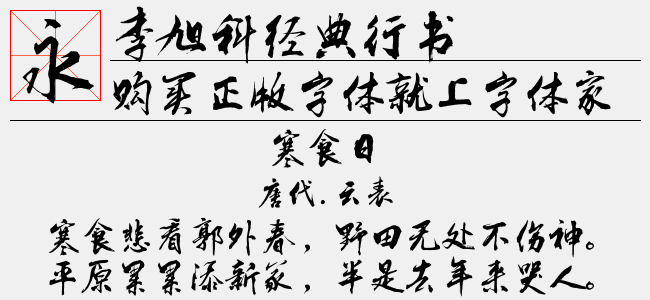 永
李旭科经典行书
购买正版字体就上字体家
寒食日
唐代.云表
寒食悲看郭外春，野田无处不伤神。
平原累累添新冢，半是去年来哭人。